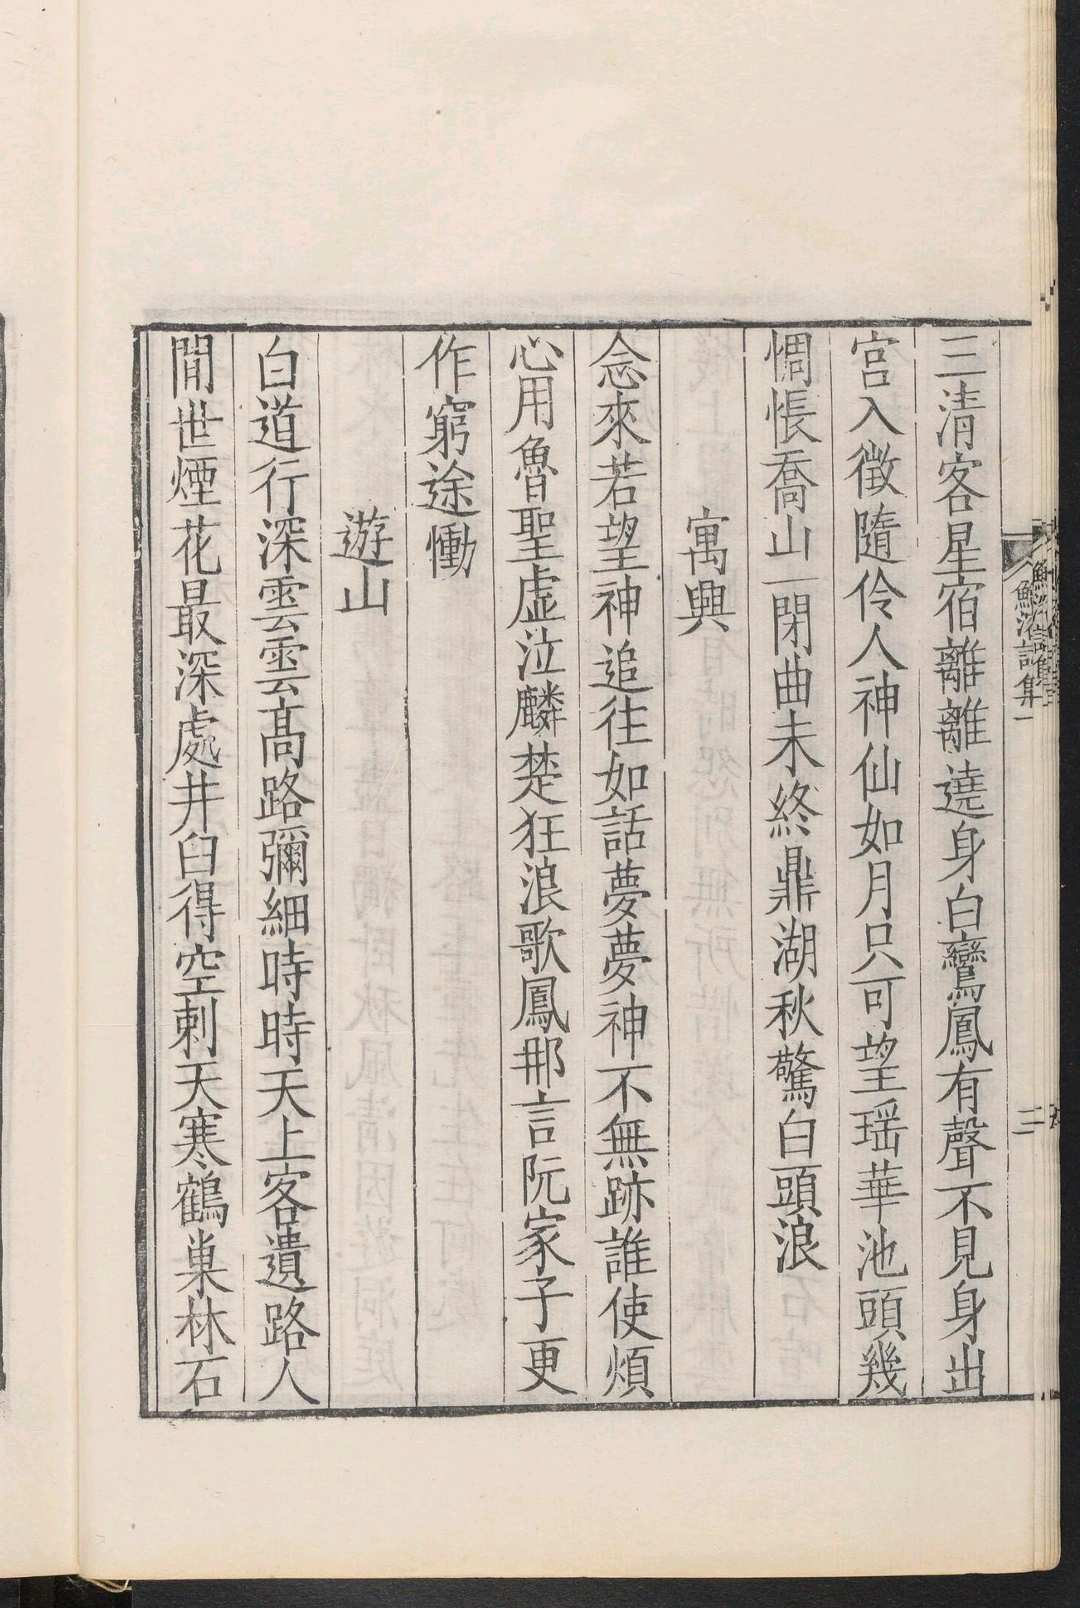 三清客星宿離離遶身白鸞鳳有聲不見身出
宮入徵隨伶人神仙如月只可望瑶華池頭幾
惆悵喬山一閉曲未終鼎湖秋驚白頭浪
寓興
念來若望神追往如話夢夢神不無跡誰使煩
心用魯聖虚泣麟楚狂浪歌鳳那言阮家子更
作窮途慟
遊山
白道行深雲雲高路彌細時時天上客遺路人
間世煙花最深處井臼得空刺天寒鶴巢林石